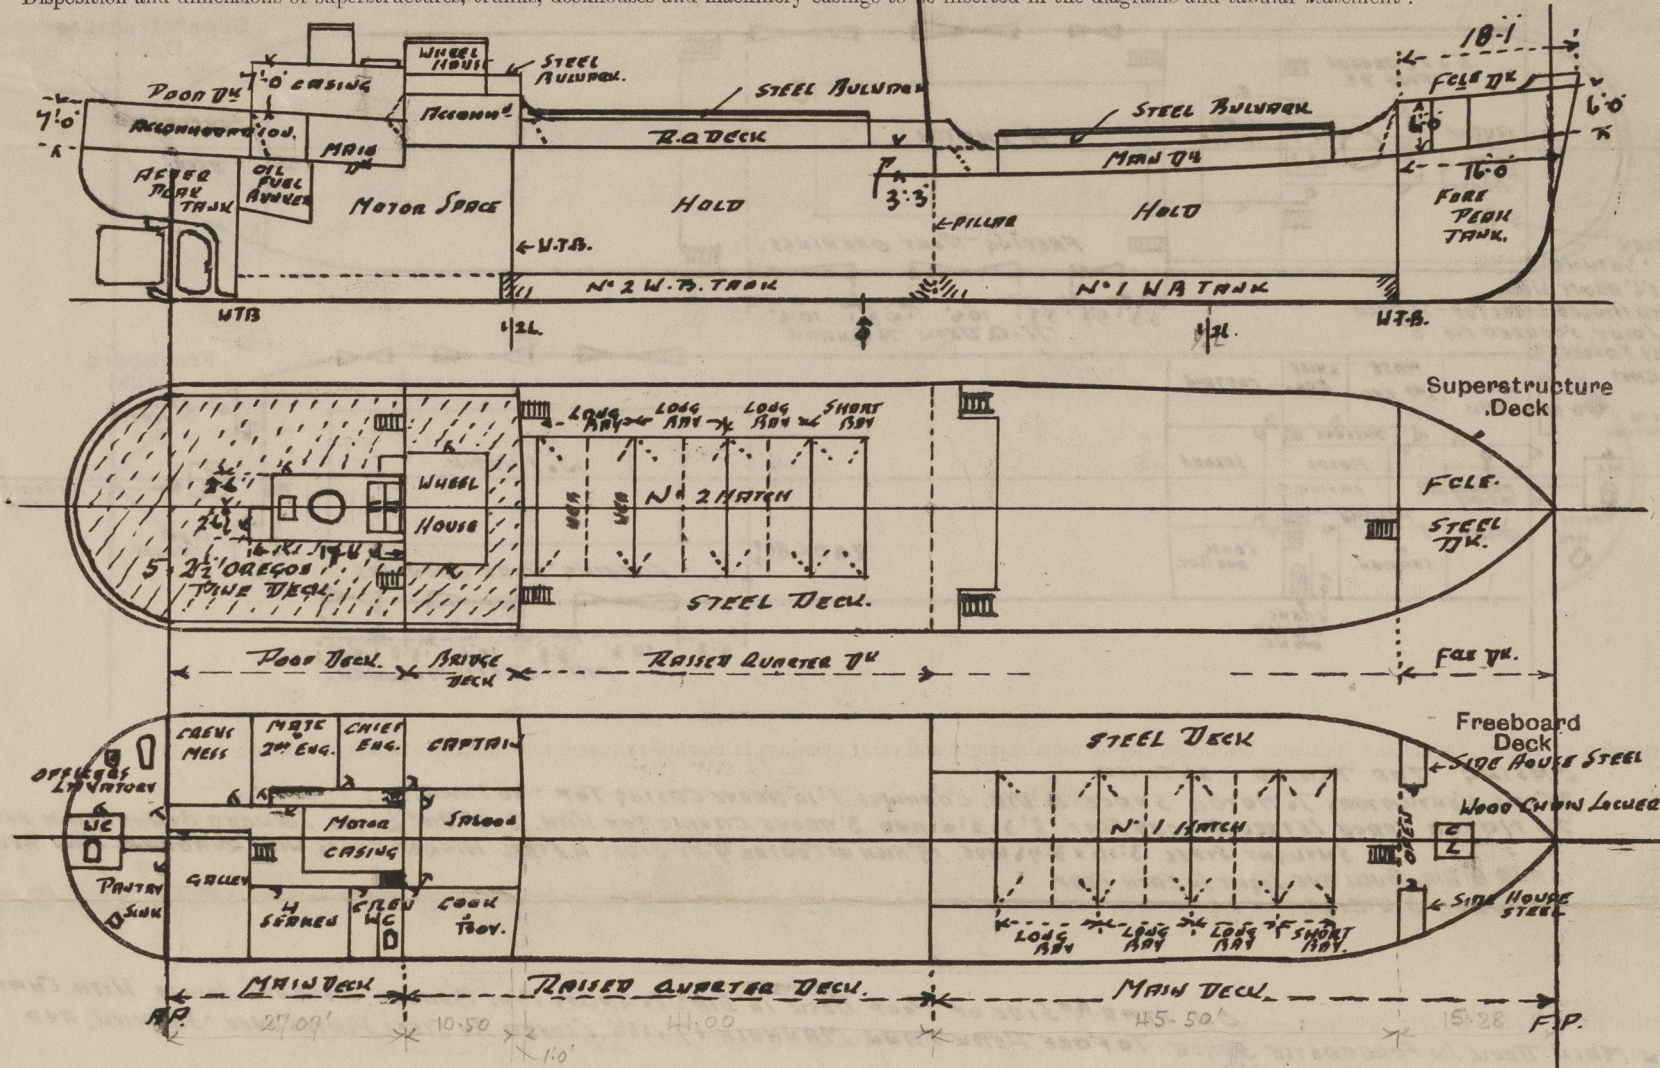 Disposition and dimensions of superstructures, trunks, deckhouses and machinery casings to be inserted in the diagrams and tabular statement.
18-1
WHEEL
HOUSE
STEEL
BULWARK.
POOP DK
7'-0"
CASING
STEEL BULWARK
FCLE DK
7'-0"
ACCOMMODATION.
ACCOMMN
STEEL BULWARK
6'-0"
6'-0
R.Q DECK
MAIN
DK
MAIN DK
16-0
AFTER
PEAK
TANK
OIL
FUEL
BUNKER
MOTOR SPACE
HOLD
3'-3"
PILLAR
HOLD
FORE
PEAK
TANK.
W.T.B.
No 2 W.B. TANK
No 1 W B TANK
WTB
1/2L.
W.T.B.
Superstructure
Deck
LONG
BAY
LONG
BAY
LONG
BAY
SHORT
BAY
2-6
2-6
WHEEL
HOUSE
WEB
WEB
No 2 HATCH
FCLE.
STEEL
DK.
5 - 2½" OREGON
PINE DECK.
STEEL DECK.
POOP DECK.
BRIDGE
DECK
RAISED QUARTER DK
FCLE DK.
Freeboard
Deck
CREWS
MESS
MATE
2ND ENG.
CHIEF
ENG.
CAPTAIN
STEEL DECK
SIDE HOUSE STEEL
OFFICERS
LAVATORY
WC
MOTOR
CASING
SALOON
No 1 HATCH
OPEN
WOOD CHAIN LOCKER
C
L
PANTRY
SINK
GALLEY
4
SEAMEN
CREW
WC
COOK
&
BOY.
SIDE HOUSE
STEEL
LONG
BAY
LONG
BAY
LONG
BAY
SHORT
BAY.
MAIN DECK
RAISED QUARTER DECK.
MAIN DECK.
A.P.
27.07'
10.50
41.00
45.50
15.28
F.P.
1.0'